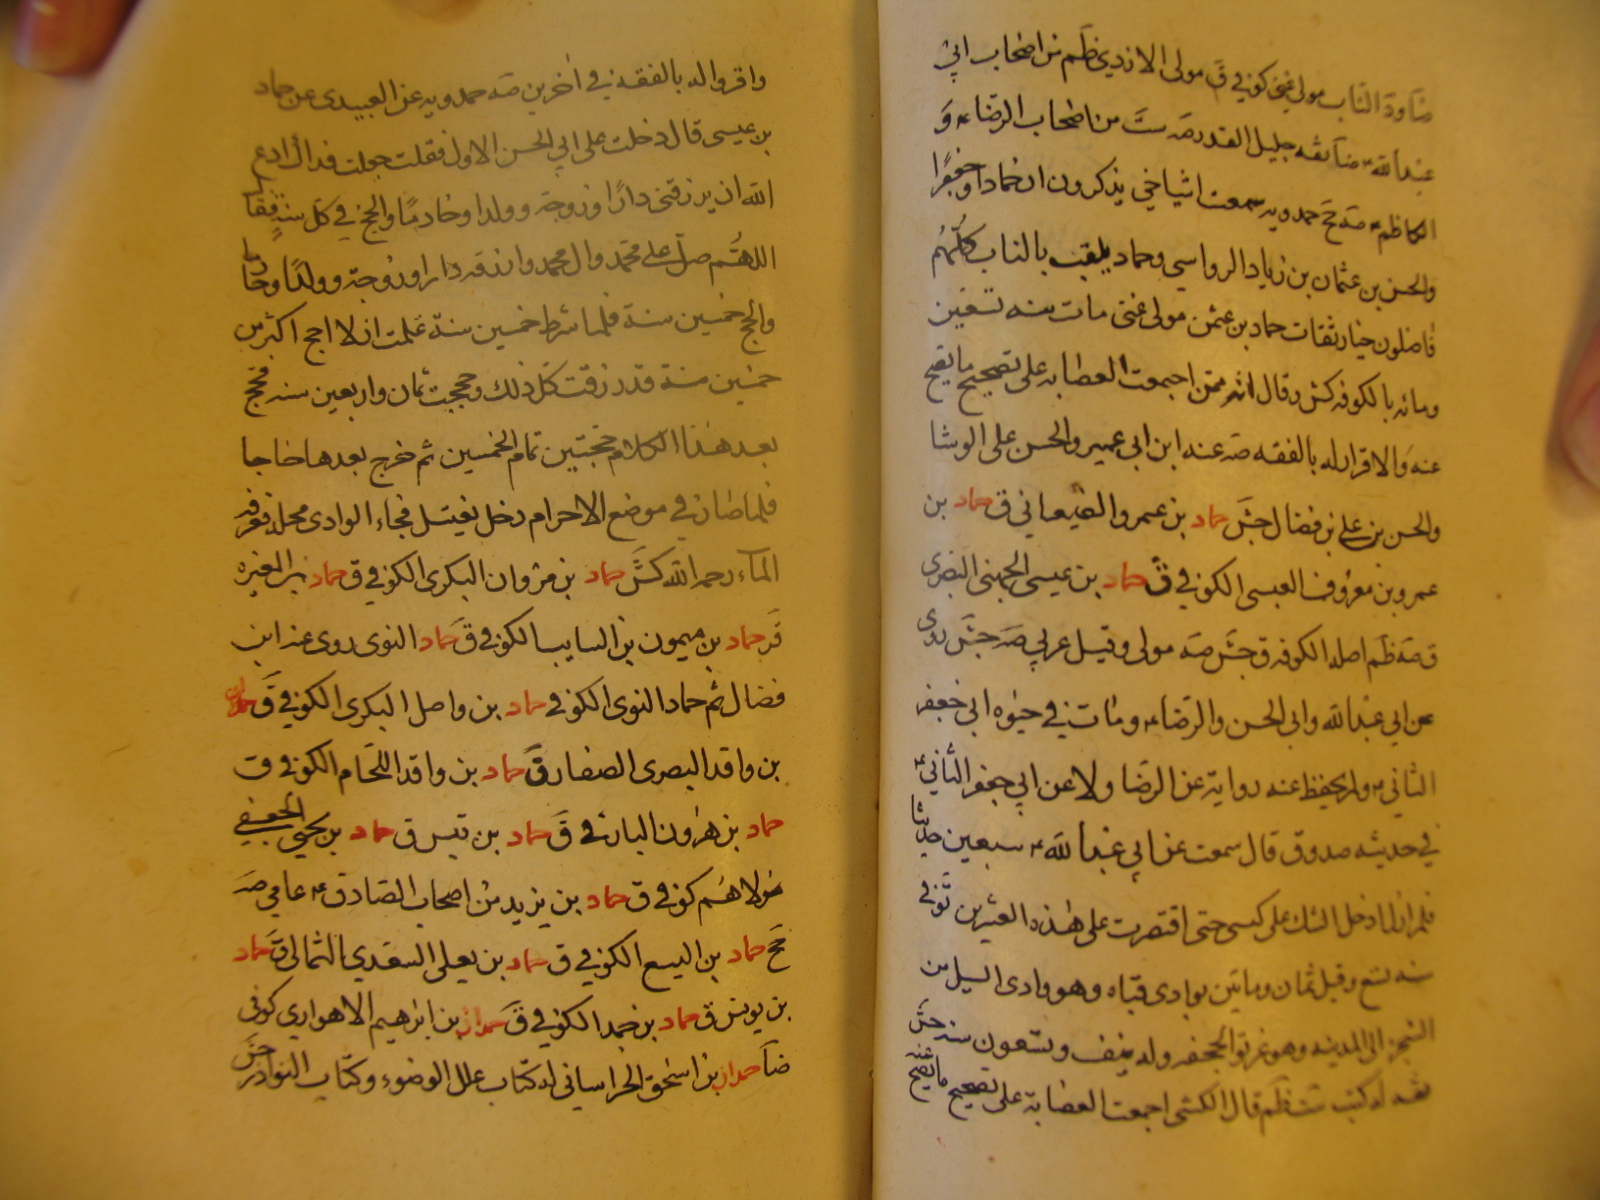 الناب مولى غنى كوفي ق مولى الازدى ظم من اصحاب ابي
عبد الله ضا ثقه جليل القدر صه ست من اصحاب الرضا ع و
الكاظم صه حمدويه سمعت اشياخي يذكرون ان حمادا وجعفرا
والحسن بن عثمان بن زياد الرواسي وحماد يلقب بالناب كلهم
فاضلون خيار ثقات حماد بن عثمن مولى غنى مات سنه تسعين
ومائه بالكوفه كش وقال انه ممن اجمعت العصابه على تصحيح ما يصح
عنه والاقرار له بالفقه صه عنه ابن ابى عمير والحسن على الوشا
والحسن بن على بن فضال جش حماد بن عمرو الصنعاني ق حماد بن
عمرو بن معروف العبسى الكوفي ق حماد بن عيسى الجهنى البصرى
ق صه ظم اصله الكوفه ق جش صه مولى وقيل عربي صه جش روى
عن ابي عبد الله وابى الحسن والرضا ع ومات في حيوه ابى جعفر
الثاني ع ولم يحفظ عنه رواية عن الرضا ولا عن ابي جعفر الثاني ع
في حديثه صدوق قال سمعت عن ابي عبد الله ع سبعين حديثا
فلم ازل ادخل الشك على نفسى حتى اقتصرت على هذه العشرين توفى
سنه تسع وقيل ثمان ومايتين بوادى قناه وهو وادى السيل من
الشجره الى المدينه وهو غريق الجحفه وله نيف وتسعون سنه جش
ثقه له كتب ست ظم قال الكشى اجمعت العصابة على تصحيح ما يصح عنه
واقروا له بالفقه في اخرين صه حمدويه عن العبيدى عن حماد
بن عيسى قال دخلت على ابي الحسن الاول فقلت جعلت فداك ادع
الله ان يرزقنى دارا وزوجة وولدا وخادما والحج في كل سنة فقال
اللهم صل على محمد وال محمد وارزقه دارا وزوجة وولدا وخادما
والحج خمسين سنة فلما شرط خمسين سنة علمت ان لا احج اكثر من
خمسين سنة قد رزقت كل ذلك وحججت ثمان واربعين سنه فحج
بعد هذا الكلام حجتين تمام الخمسين ثم خرج بعدها حاجا
فلما صار في موضع الاحرام دخل يغتسل فجاء الوادى فحمله فغرقه
الماء رحمه الله كش حماد بن مروان البكرى الكوفي ق حماد بن المغيره
ق حماد بن ميمون بن السايب الكوفي ق حماد النوى روى عنه ابن
فضال ثم حماد النوى الكوفي حماد بن واصل البكرى الكوفي ق حماد
بن واقد البصرى الصفار ق حماد بن واقد اللحام الكوفي ق
حماد بن هرون البارقي ق حماد بن قيس ق حماد بن يحيى الجعفي
مولاهم كوفي ق حماد بن يزيد من اصحاب الصادق ع عامي صه
حماد بن اليسع الكوفي ق حماد بن يعلى السعدي الثمالى ق حماد
بن يونس ق حماد بن حمد الكوفي ق حمدان بن ابرهيم الاهوازي كوفى
ضا حمدان بن اسحق الخراساني له كتاب علل الوضوء وكتاب النوادر جش